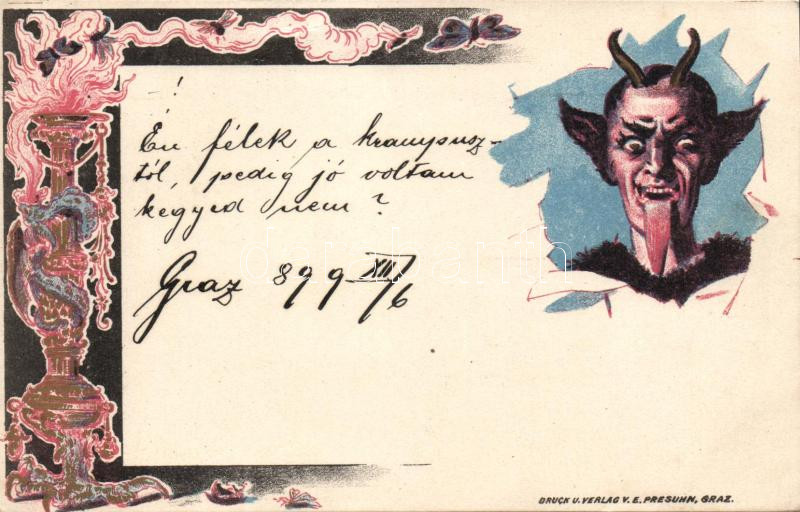 !
Én félek a krampusz-
tól, pedig jó voltam
kegyed nem?
Graz 899 XII/6
DRUCK U. VERLAG V. E. PRESUHN, GRAZ.